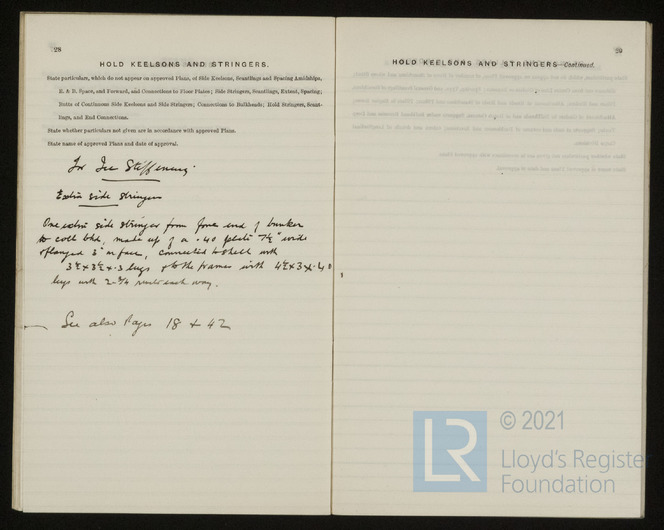 28
HOLD KEELSONS AND STRINGERS.
State particulars, which do not appear on approved Plans, of Side Keelsons, Scantlings and Spacing Amidships,
E. & B. Space, and Forward, and Connections to Floor Plates; Side Stringers, Scantlings, Extent, Spacing;
Butts of Continuous Side Keelsons and Side Stringers; Connections to Bulkheads; Hold Stringers, Scant-
lings, and End Connections.
State whether particulars not given are in accordance with approved Plans.
State name of approved Plans and date of approval.
For Ice Stiffening
Extra side stringers
One extra side stringer from fore end of bunker
to coll bhd, made up of a .40 plate 7½" wide
& flanged 3" on face, connected to shell with
3½ x 3½ x .3 lugs & to the frames with 4½ x 3 x .40
lugs with 2-¾ rivets each way.
See also Pages 18 + 42
29
HOLD KEELSONS AND STRINGERS—Continued.
LR
© 2021
Lloyd's Register
Foundation